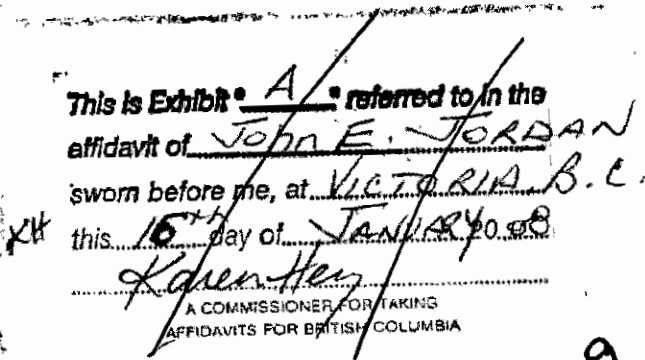 This is Exhibit "A" referred to in the
affidavit of John E. JORDAN
sworn before me, at VICTORIA, B.C.
KH this 16th day of JANUARY 20 08
Karen Hey
A COMMISSIONER FOR TAKING
AFFIDAVITS FOR BRITISH COLUMBIA
9